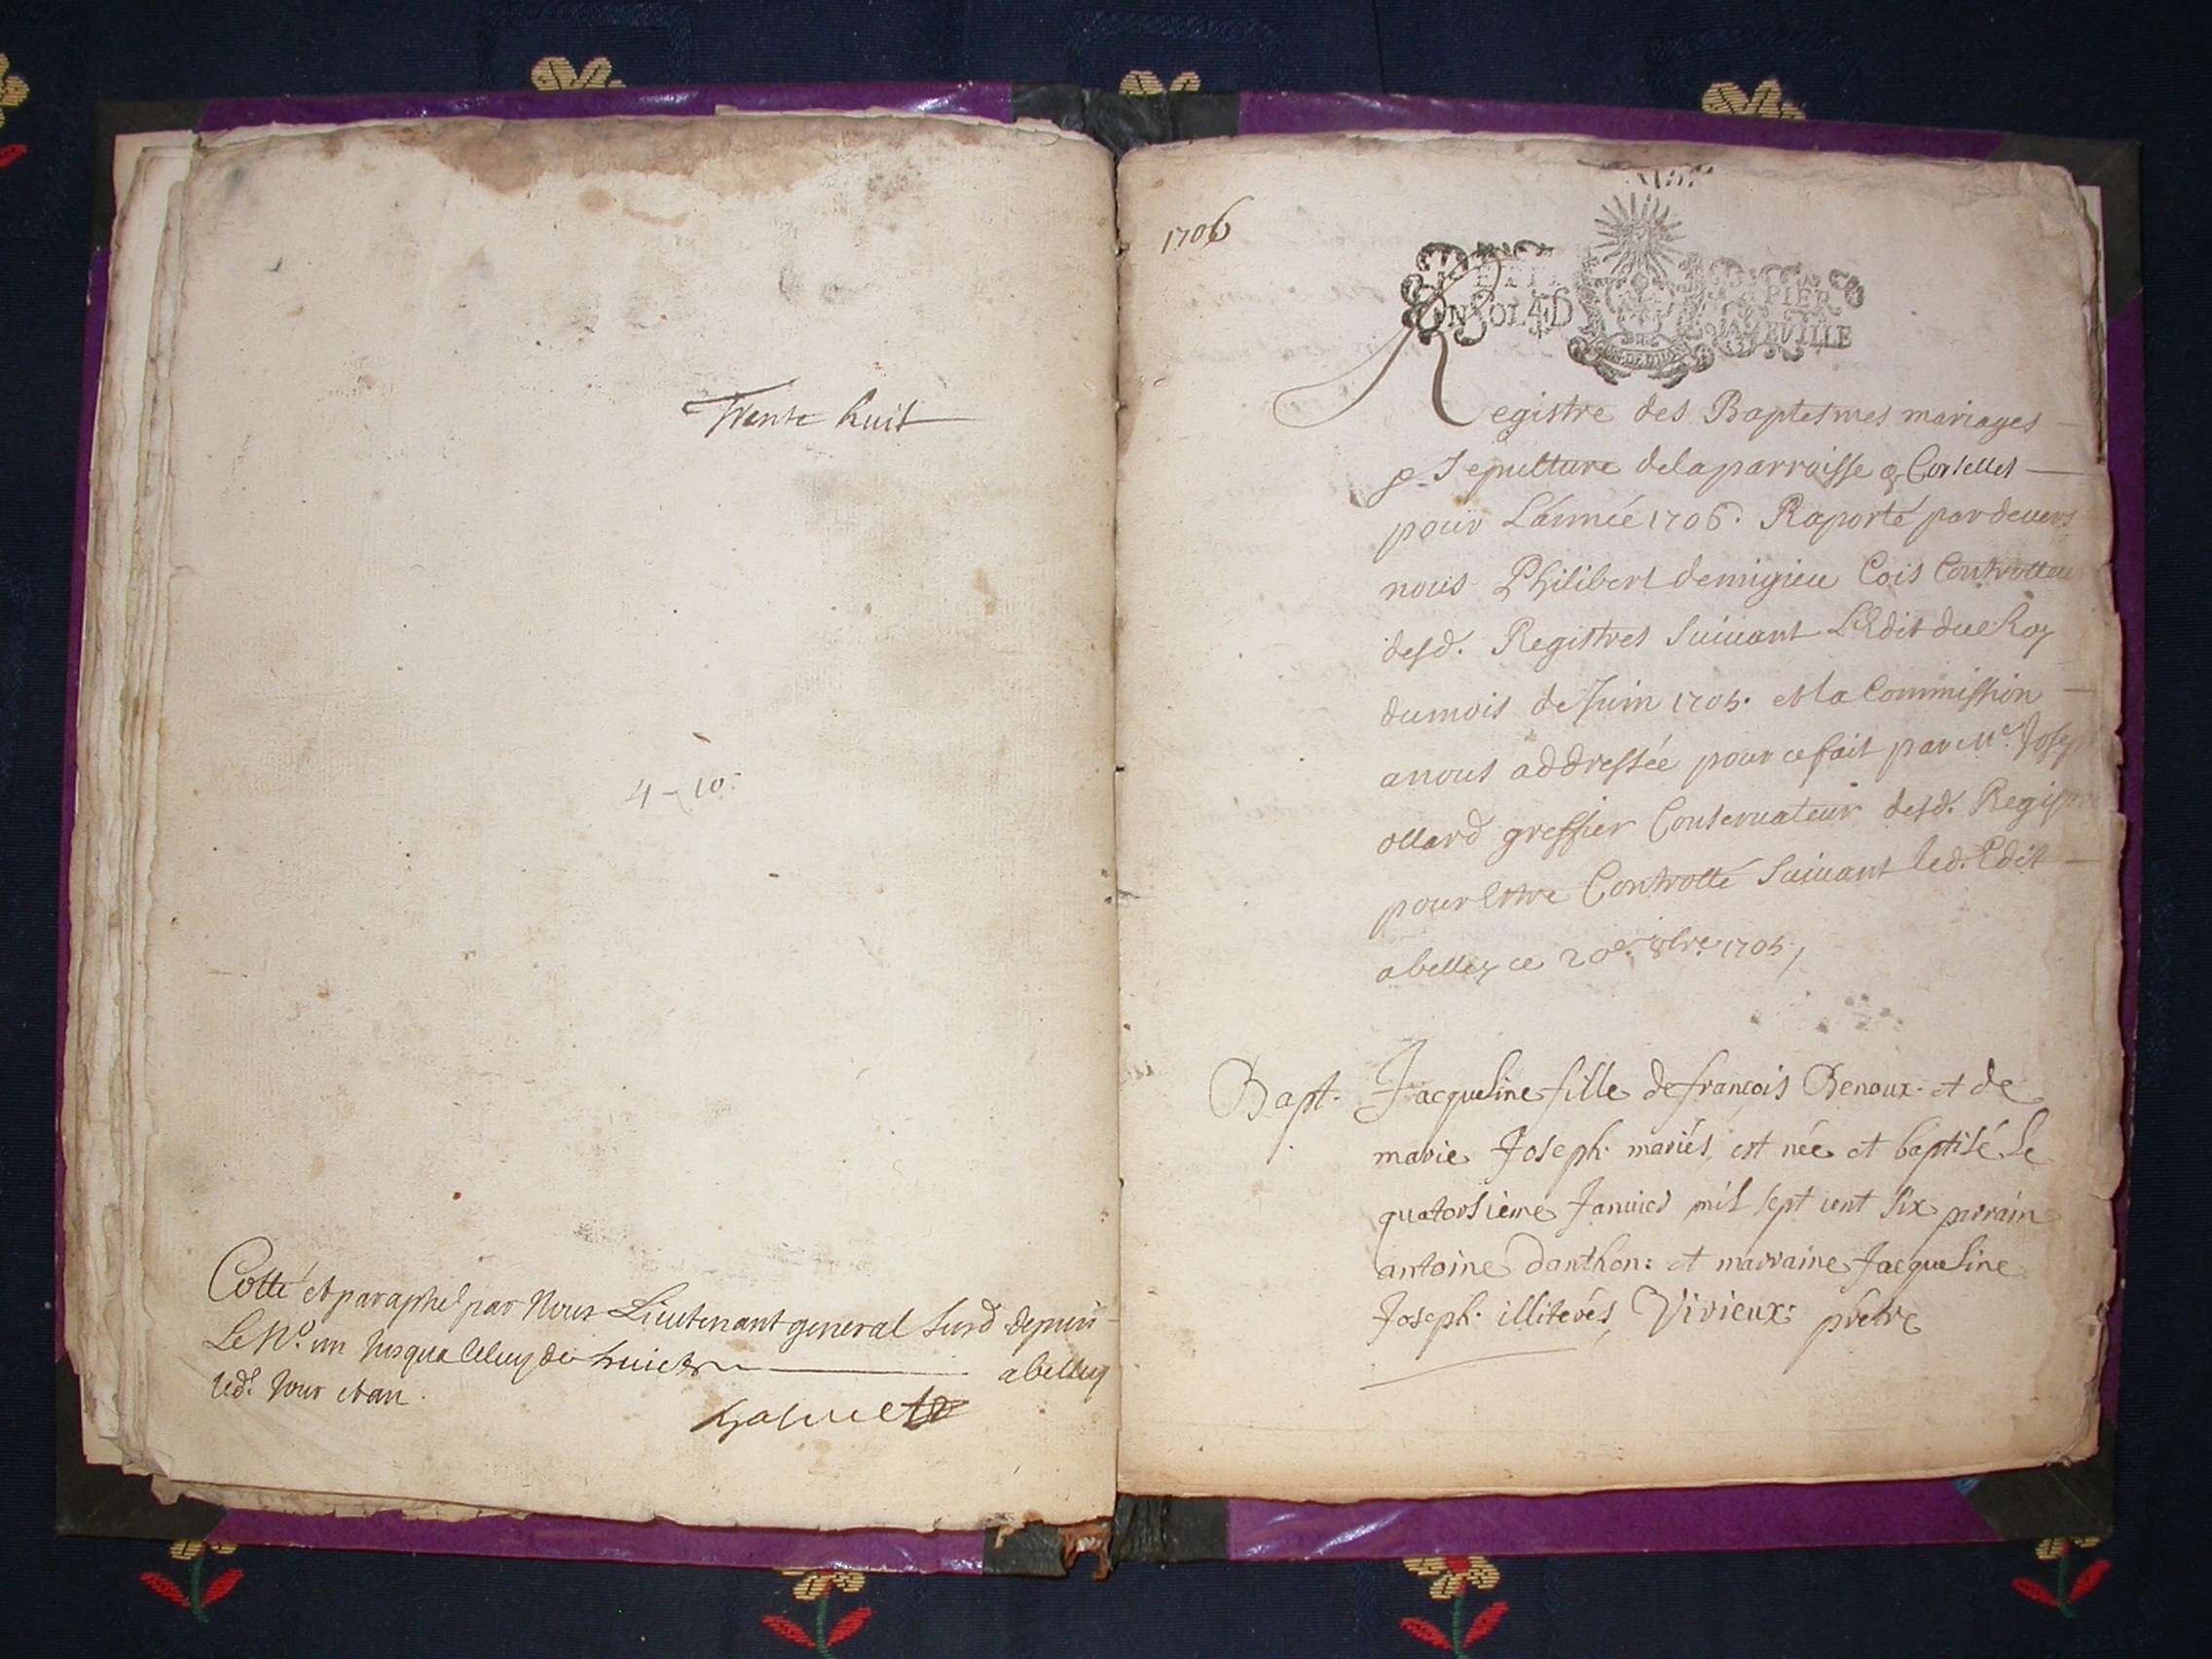 Trente huit
4 - 10
Cotté et paraphé par Nous Lieutenant general susd depuis
Le No. un Jusqua Celuy de huict abelley
led. Jour et an
1706
PETIT PAPIER
UN SOL 4 D LA FEUILLE
Registre des Baptesmes mariages
& Sepulture dela parroisse de
pour Lannée 1706. Raporté pardevers
nous Philibert demigieu Cois Controlleu
desd. Registres Suivant LEdit du Roy
dumois de Juin 1705. et la Commission
anous addressée pour ce fait par Mre. Joseph
ollard greffier Conservateur desd. Regist
pour Estre Controllé Suivant led. Edit
abelley ce 20e. 8bre. 1705
Bapt. Jacqueline fille de francois Benoux et de
marie Joseph mariés est née et baptisé Le
quatorsieme Janvier mil sept cent Six parrain
antoine danthon: et marraine Jacqueline
Joseph. illiterés, Virieux: prêtre